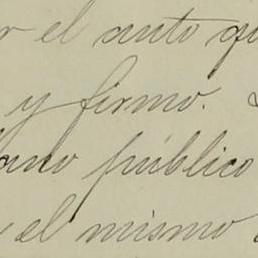 r el auto qu
y firmo.
ano público
y el mismo